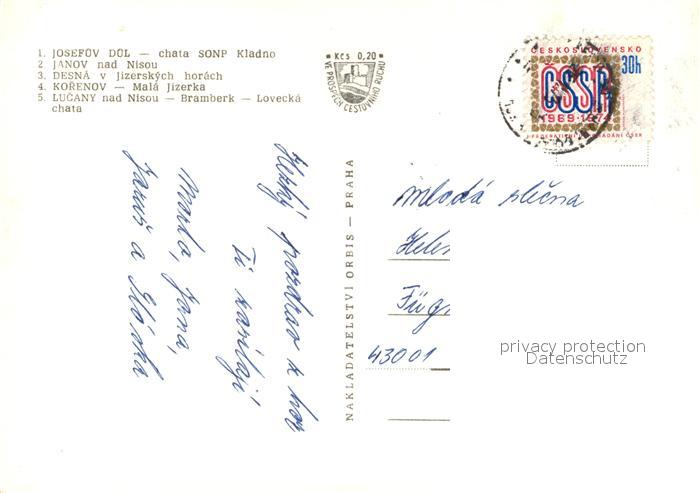 1. JOSEFŮV DŮL — chata SONP Kladno
2 JANOV nad Nisou
3. DESNÁ v Jizerských horách
4. KOŘENOV — Malá Jizerka
5. LUČANY nad Nisou — Bramberk — Lovecká
chata
Kčs 0,20
VE PROSPĚCH CESTOVNÍHO RUCHU
ČESKOSLOVENSKO
30h
ČSSR
1969-1974
Hezký pozdrav z hor
Ti zasílají
Jana,
a
NAKLADATELSTVÍ ORBIS — PRAHA
mladá slečna
Füg
43001
privacy protection
Datenschutz